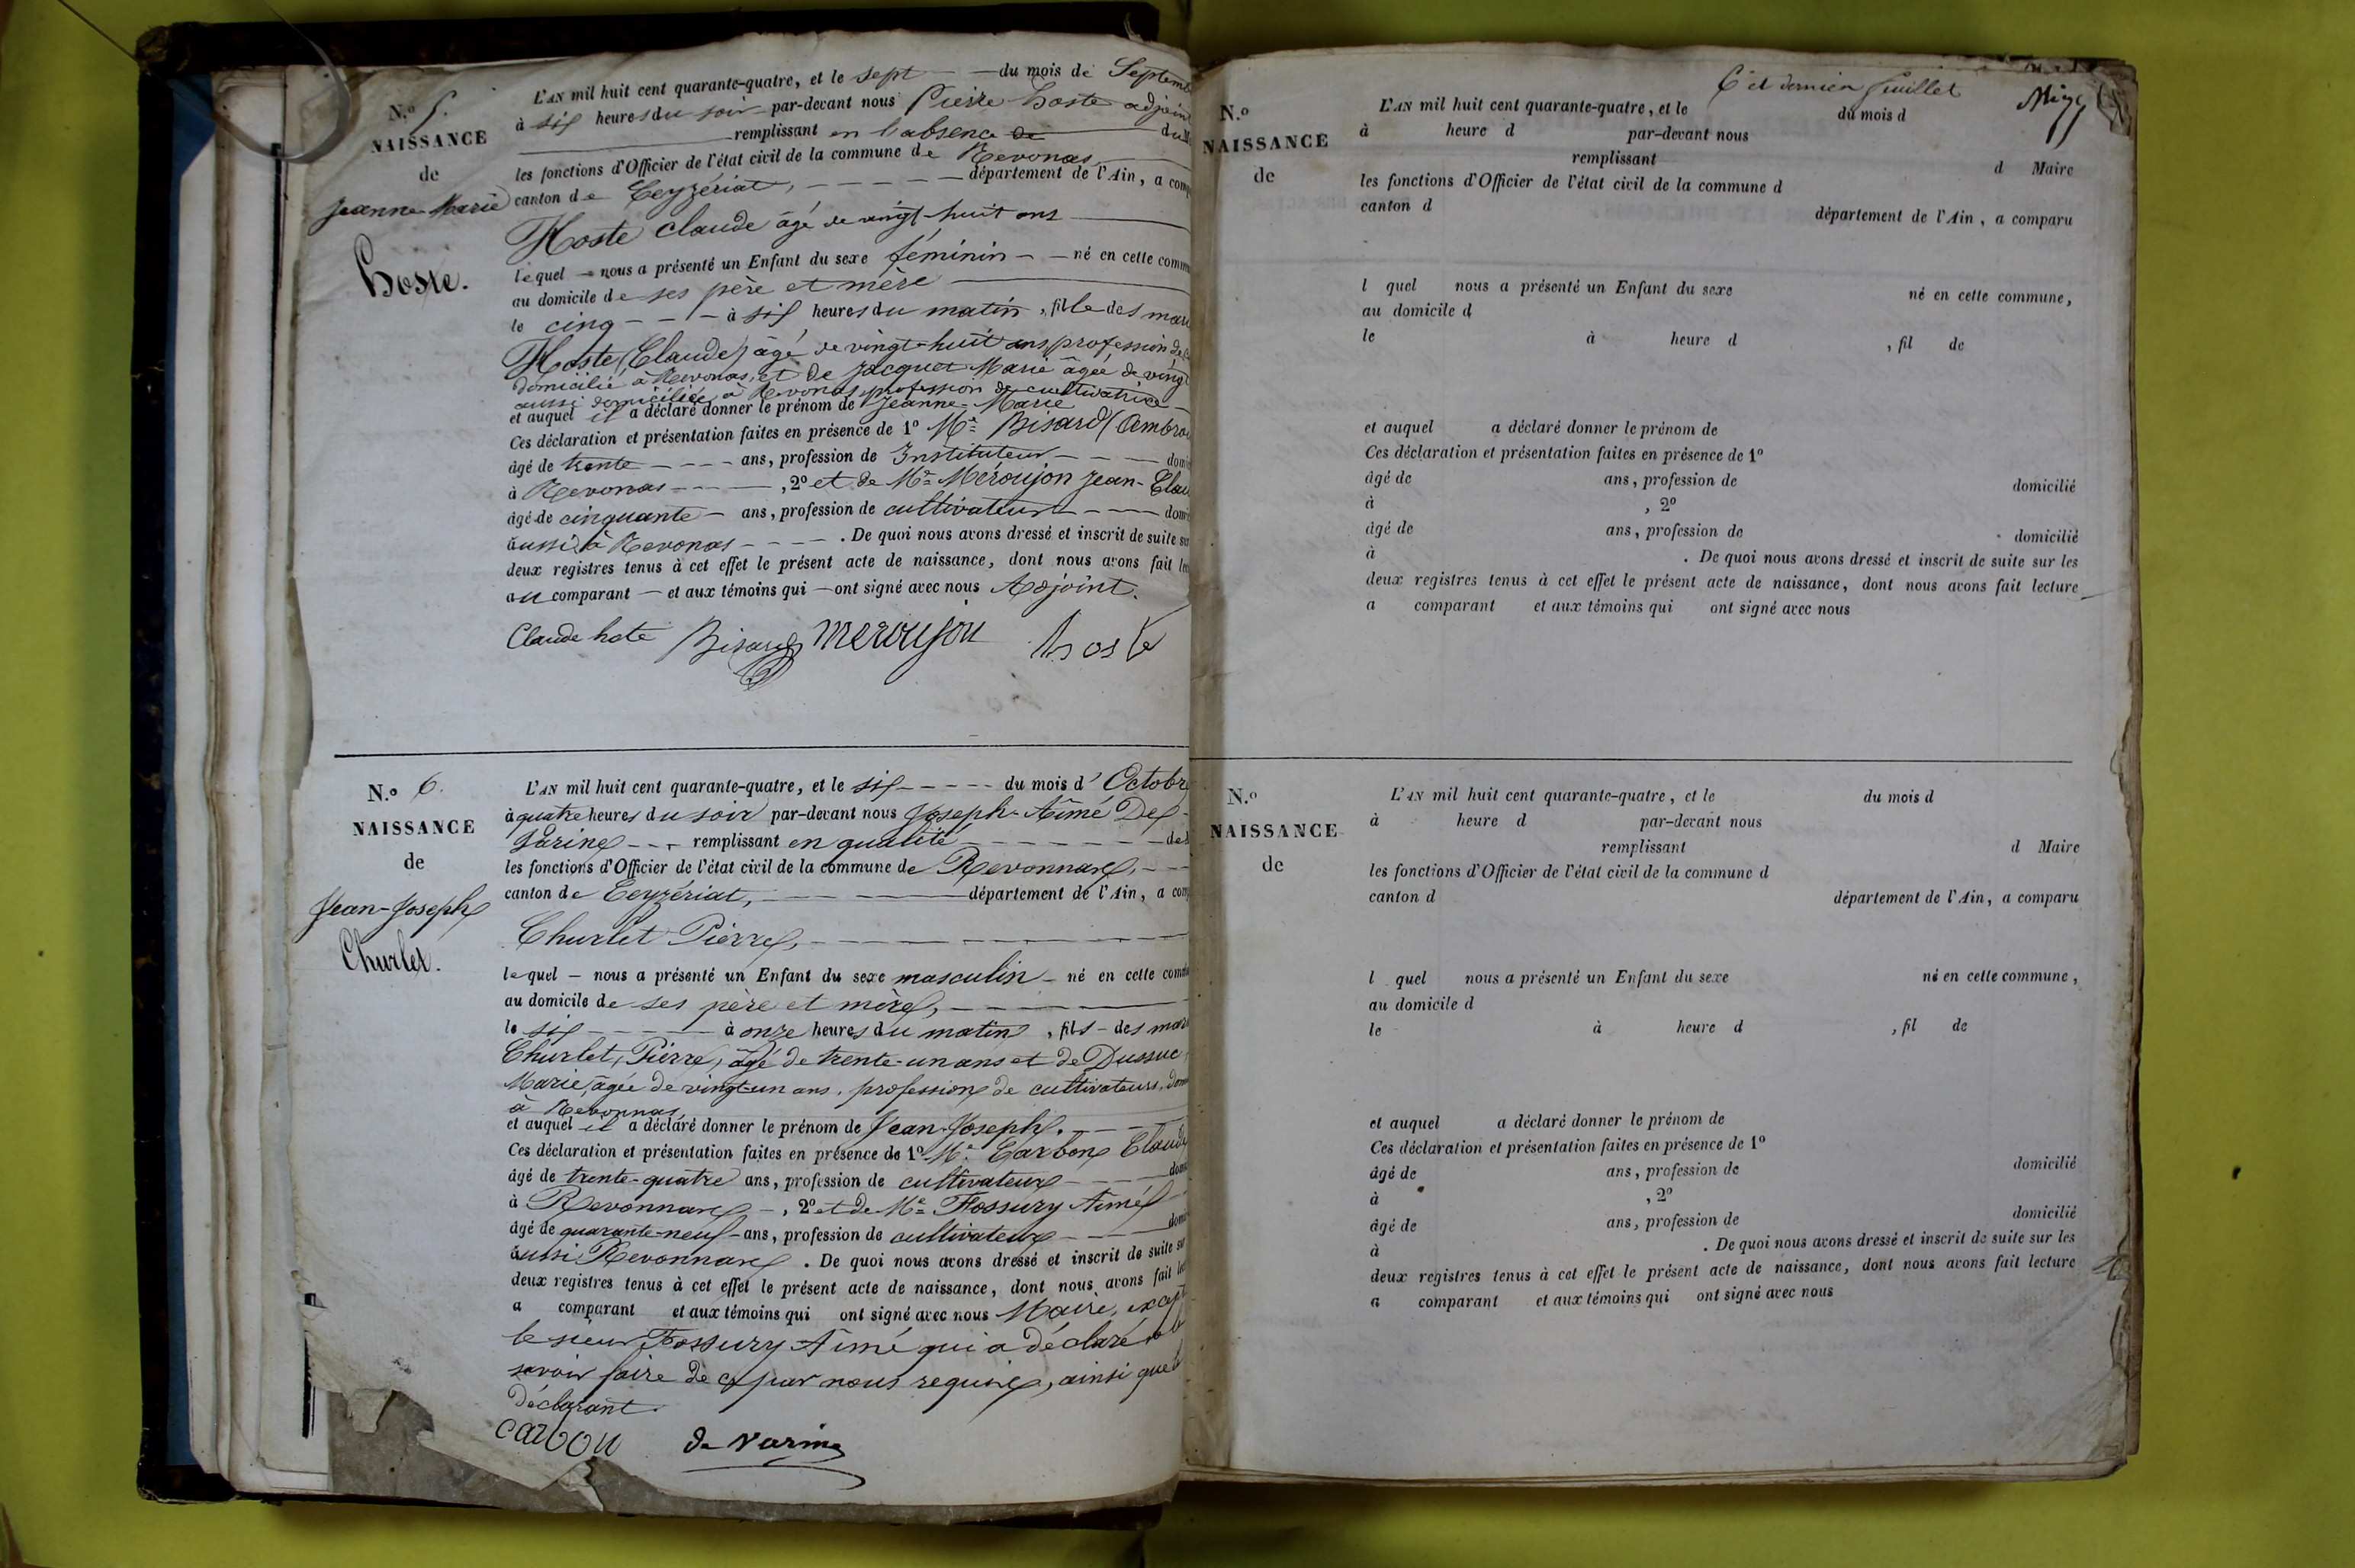 N.o 5.
NAISSANCE
de
Jeanne-Marie
hoste.
L'AN mil huit cent quarante-quatre, et le sept du mois de Septemb
à six heures du soir par-devant nous Pierre hoste adjoin
remplissant en l'absence de du
les fonctions d'Officier de l'état civil de la commune de Revonas
canton de Ceyzériat, département de l'Ain, a com
Hoste Claude âgé de vingt-huit ans
lequel nous a présenté un Enfant du sexe féminin né en cette comm
au domicile de ses père et mère
le cinq à six heures du matin, fille des mari
Hoste (Claude) âgé de vingt-huit ans, profession de
domicilié à Revonas, et de Jacquet Marie âgée de vingt
aussi domiciliée à Revonas profession de cultivatrice
et auquel il a déclaré donner le prénom de Jeanne-Marie
Ces déclaration et présentation faites en présence de 1º Mr Bisard (Ambroi
âgé de trente ans, profession de Instituteur domi
à Revonas, 2º et de Mr Méroujon Jean-Clau
âgé de cinquante ans, profession de cultivateur domi
aussi à Revonas. De quoi nous avons dressé et inscrit de suite su
deux registres tenus à cet effet le présent acte de naissance, dont nous avons fait lec
au comparant et aux témoins qui ont signé avec nous Adjoint.
Claude hote Bisard meroujon hoste
N.o 6.
NAISSANCE
de
Jean-Joseph
Churlet.
L'AN mil huit cent quarante-quatre, et le six du mois d'Octobre
à quatre heures du soir par-devant nous Joseph-Aimé De
Varine remplissant en qualité de
les fonctions d'Officier de l'état civil de la commune de Revonnas,
canton de Ceyzériat, département de l'Ain, a com
Churlet Pierre,
lequel nous a présenté un Enfant du sexe masculin né en cette comm
au domicile de ses père et mère,
le six à onze heures du matin, fils des mari
Churlet, Pierre, âgé de trente-un ans et de Dussuc
Marie, âgée de vingt-un ans, profession de cultivateurs, dom
à Revonnas,
et auquel il a déclaré donner le prénom de Jean-Joseph.
Ces déclaration et présentation faites en présence de 1º Mr Carbon Claude
âgé de trente-quatre ans, profession de cultivateur domi
à Revonnas, 2º et de Mr Fossury Aimé
âgé de quarante-neuf ans, profession de cultivateur domi
aussi Revonnas. De quoi nous avons dressé et inscrit de suite sur
deux registres tenus à cet effet le présent acte de naissance, dont nous avons fait lec
a comparant et aux témoins qui ont signé avec nous Maire, except
le sieur Fossury Aimé qui a déclaré ne le
savoir faire de ce par nous requis, ainsi que le
déclarant.
carbon de Varine
6 et dernier feuillet
N.o
NAISSANCE
de
L'AN mil huit cent quarante-quatre, et le du mois d
à heure d par-devant nous
remplissant d Maire
les fonctions d'Officier de l'état civil de la commune d
canton d département de l'Ain, a comparu
l quel nous a présenté un Enfant du sexe né en cette commune,
au domicile d
le à heure d , fil de
et auquel a déclaré donner le prénom de
Ces déclaration et présentation faites en présence de 1º
âgé de ans, profession de domicilié
à , 2º
âgé de ans, profession de domicilié
à . De quoi nous avons dressé et inscrit de suite sur les
deux registres tenus à cet effet le présent acte de naissance, dont nous avons fait lecture
a comparant et aux témoins qui ont signé avec nous
N.o
NAISSANCE
de
L'AN mil huit cent quarante-quatre, et le du mois d
à heure d par-devant nous
remplissant d Maire
les fonctions d'Officier de l'état civil de la commune d
canton d département de l'Ain, a comparu
l quel nous a présenté un Enfant du sexe né en cette commune,
au domicile d
le à heure d , fil de
et auquel a déclaré donner le prénom de
Ces déclaration et présentation faites en présence de 1º
âgé de ans, profession de domicilié
à , 2º
âgé de ans, profession de domicilié
à . De quoi nous avons dressé et inscrit de suite sur les
deux registres tenus à cet effet le présent acte de naissance, dont nous avons fait lecture
a comparant et aux témoins qui ont signé avec nous